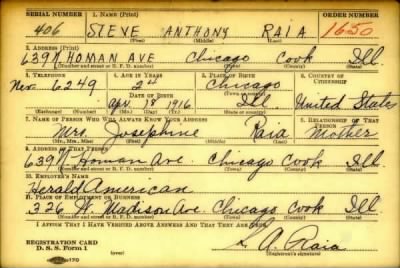 SERIAL NUMBER 1. NAME (Print) ORDER NUMBER
406 STEVE ANTHONY RAIA 1650
(First) (Middle) (Last)
2. ADDRESS (Print)
639 N HOMAN AVE Chicago Cook Ill.
(Number and street or R. F. D. number) (Town) (County) (State)
3. TELEPHONE 4. AGE IN YEARS 5. PLACE OF BIRTH 6. COUNTRY OF CITIZENSHIP
Nev. 6249 24 Chicago
DATE OF BIRTH (Town or county)
Apr. 18 1916 Ill. United States
(Exchange) (Number) (Mo.) (Day) (Yr.) (State or country)
7. NAME OF PERSON WHO WILL ALWAYS KNOW YOUR ADDRESS 8. RELATIONSHIP OF THAT PERSON
Mrs. Josephine Raia Mother
(Mr., Mrs., Miss) (First) (Middle) (Last)
9. ADDRESS OF THAT PERSON
639 N Homan Ave. Chicago Cook Ill.
(Number and street or R. F. D. number) (Town) (County) (State)
10. EMPLOYER'S NAME
Herald American
11. PLACE OF EMPLOYMENT OR BUSINESS
326 W. Madison Ave. Chicago Cook Ill.
(Number and street or R. F. D. number) (Town) (County) (State)
I AFFIRM THAT I HAVE VERIFIED ABOVE ANSWERS AND THAT THEY ARE TRUE.
REGISTRATION CARD
D. S. S. Form 1
A. Raia
(Registrant's signature)